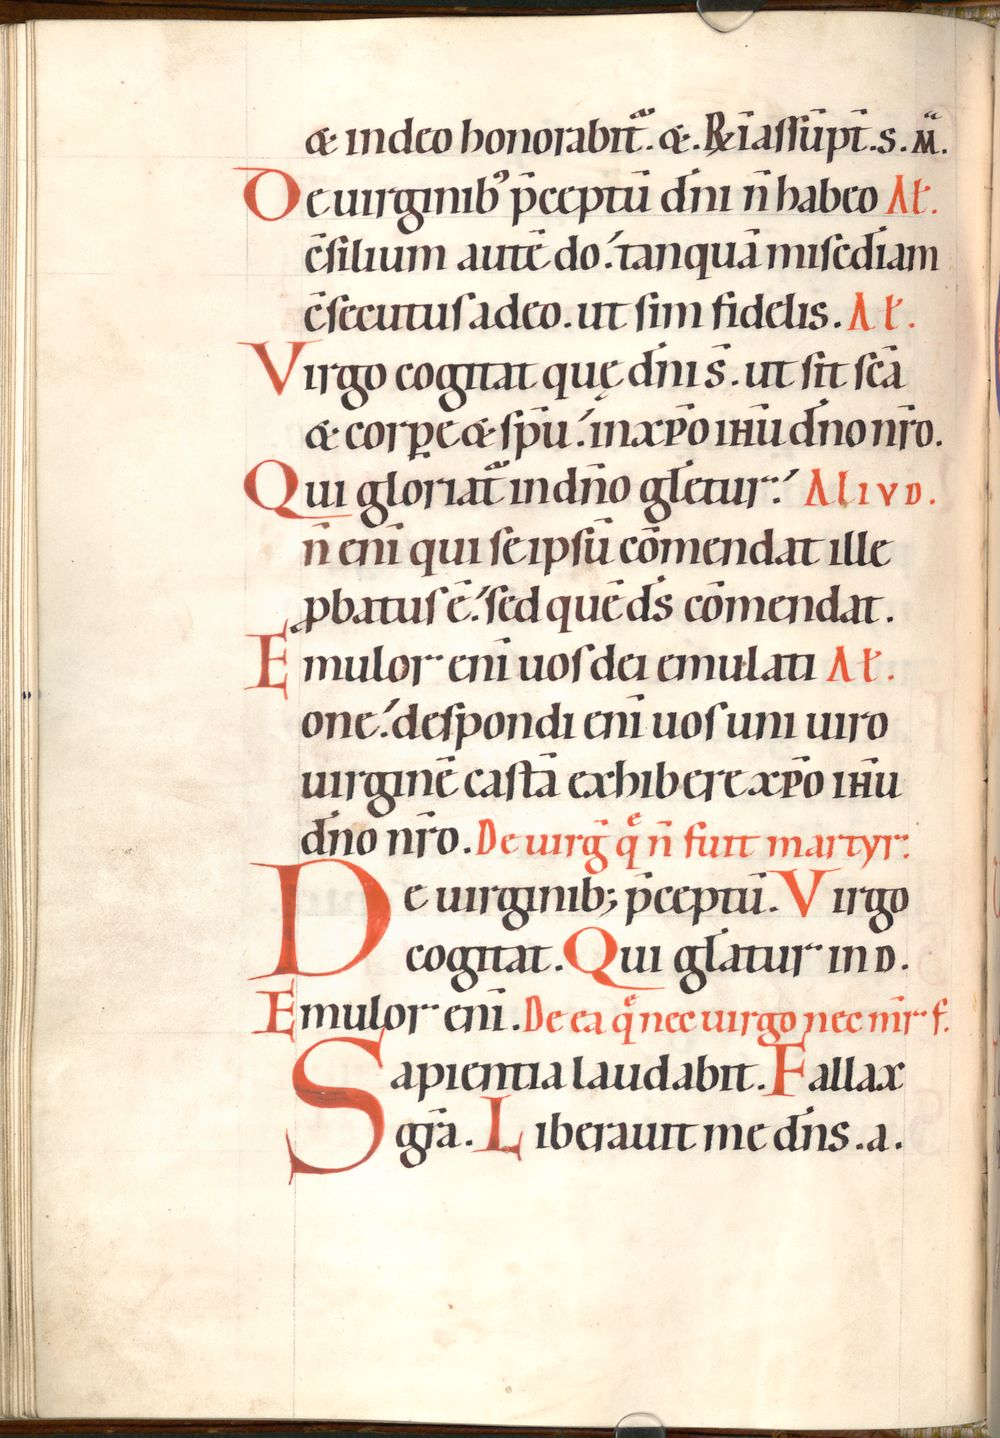 & in deo honorabit᷑. &. R& i̅ assu̅pt̅. s. M̅.
De uirginib᾽ p̅ceptu̅ dn̅i n̅ habeo Al̵.
c̅silium aute̅ do. tanqua̅ misc̅diam
c̅secutus a deo. ut sim fidelis. Al̵.
Virgo cogitat quę dn̅i s̅. ut sit sc̅a
& corꝑe & sp̅u. in xp̅o ihu̅ dn̅o nr̅o.
Qui gloriat᷑ in dn̅o gl̅etur. Alivd.
n̅ eni̅ qui se ipsu̅ co̅mendat ille
ꝓbatus e̅. sed que̅ ds̅ co̅mendat.
Emulor eni̅ uos dei emulati Al̵.
one. despondi eni̅ uos uni uiro
uirgine̅ casta̅ exhibere xp̅o ihu̅
dn̅o nr̅o. De uirg̅ qͤ n̅ funt martyr:
De uirginib; p̅ceptu̅. Virgo
cogitat. Qui gl̅atur in d.
Emulor eni̅. De ea qͤ nec uirgo nec mr̅ f.
Sapientia laudabit. Fallax
gr̅a. Liberauit me dn̅s. a.